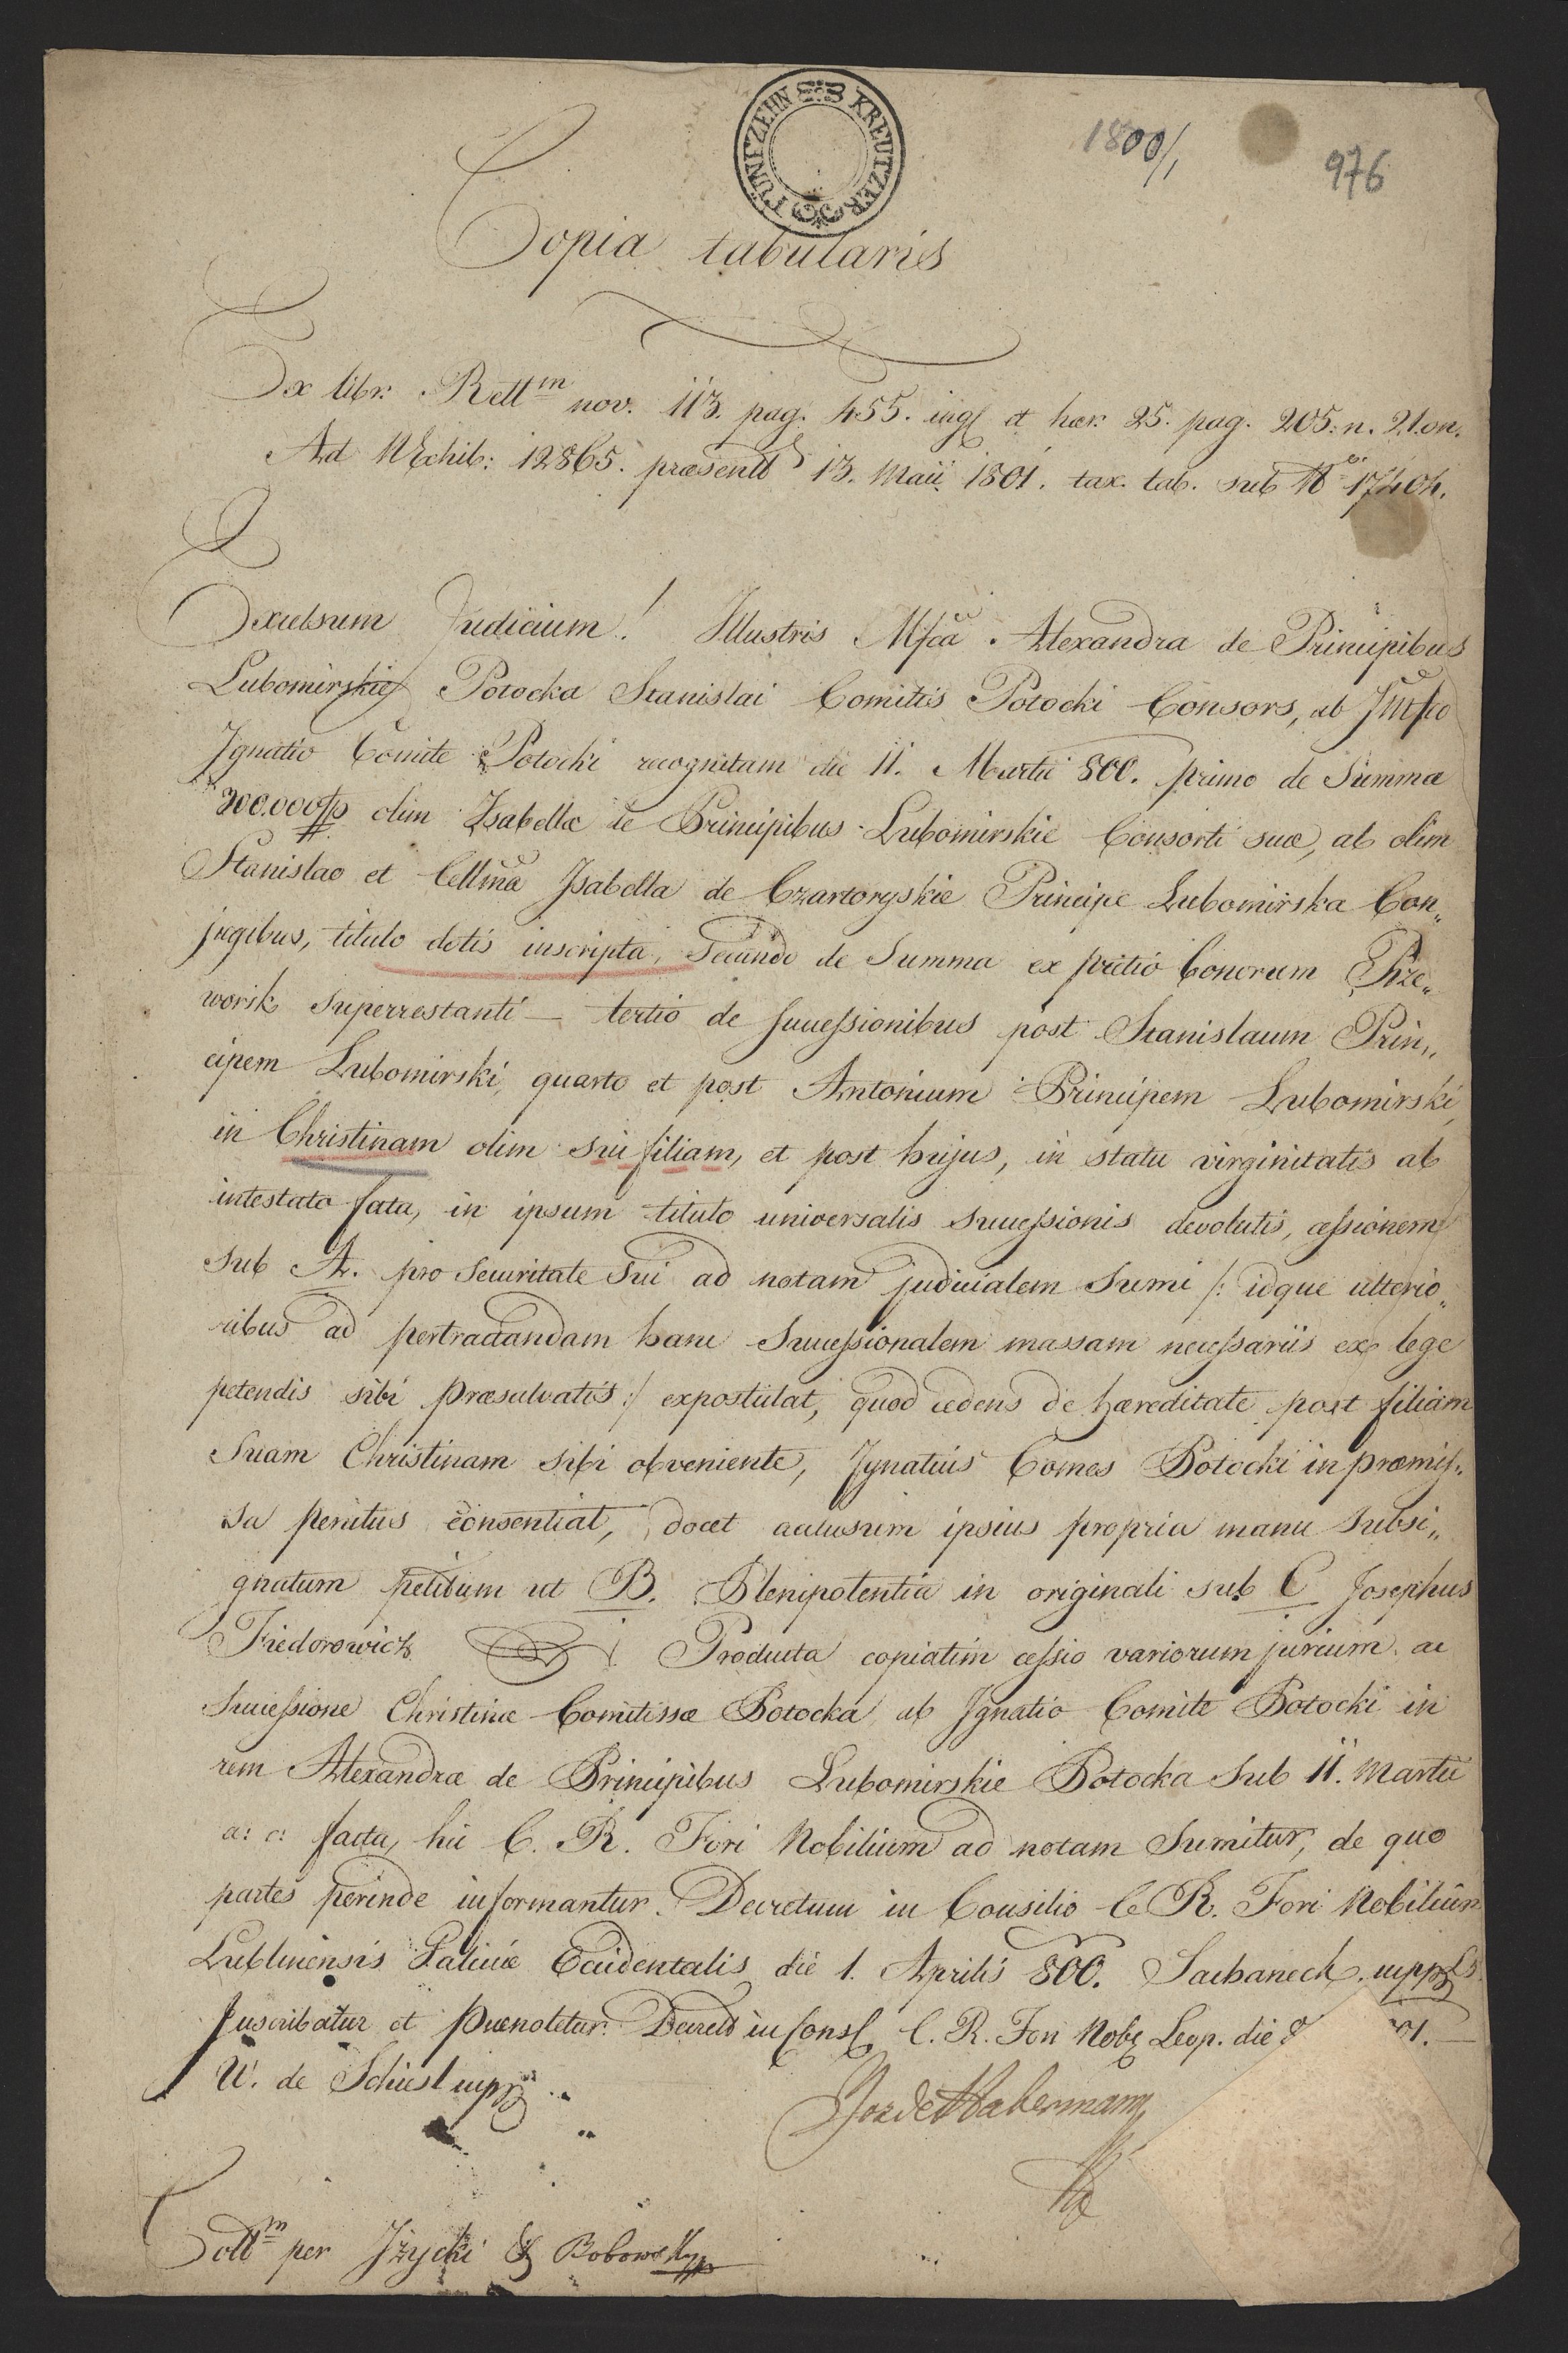 FÜNFZEHN KREUTZER
1800/1
976
Copia tabularis
Ex libr: Rell<sup>m</sup> nov. 113. pag. 455. ing et hær: 25. pag. 205. n. 21. on.
Ad NExhib: 12865. præsentt 13. Maii 1801. tax. tab. sub N<sup>o</sup> 17404.
Excelsum Judicium! Illustris Mfca Alexandra de Principibus
Lubomirskie Potocka Stanislai Comitis Potocki Consors, ab
Ignatio Comite Potocki recognitam die 11. Martii 800. primo de Summa
200.000 fp olim Isabellæ de Principibus Lubomirskie Consorti suæ, ab olim
Stanislao et Cellma Isabella de Czartoryskie Principe Lubomirska Con„
jugibus, titulo dotis inscripta, Secundo de Summa ex pretio bonorum Prze„
worsk superrestanti — tertio de successionibus post Stanislaum Prin„
cipem Lubomirski, quarto et post Antonium Principem Lubomirski,
in Christinam olim sui filiam, et post hujus, in statu virginitatis ab
intestato fata, in ipsum titulo universalis successionis devolutis, cessionem
sub A. pro securitate sui ad notam judicialem sumi /: idque ulterio„
ribus ad pertractandam hanc Successionalem massam necessariis ex lege
petendis sibi præsalvatis :/ expostulat, quod cedens de hæreditate post filiam
Suam Christinam sibi obveniente, Ignatius Comes Potocki in præmis„
sa penitus consentiat, docet acclusum ipsius propria manu Subsi„
gnatum petitum ut B. Plenipotentia in originali sub C Josephus
Fiedorowicz Producta copiatim cessio variorum jurium ac
Successione Christinæ Comitissæ Potocka ab Ignatio Comite Potocki in
rem Alexandræ de Principibus Lubomirskie Potocka Sub 11. Martii
a: c: facta, hic C. R. Fori Nobilium ad notam Sumitur, de quo
partes perinde informantur. Decretum in Consilio C R. Fori Nobilium
Lublinensis Galiciæ Occidentalis die 1. Aprilis 800. Sacbaneck mpp
Inscribatur et prænotetur. Decret in Cons C. R. Fori Nob Leop. die 801.
U. de Schiesl mpp
Jos de Habermann
Coll<sup>m</sup> per Iżycki & Bobowsky